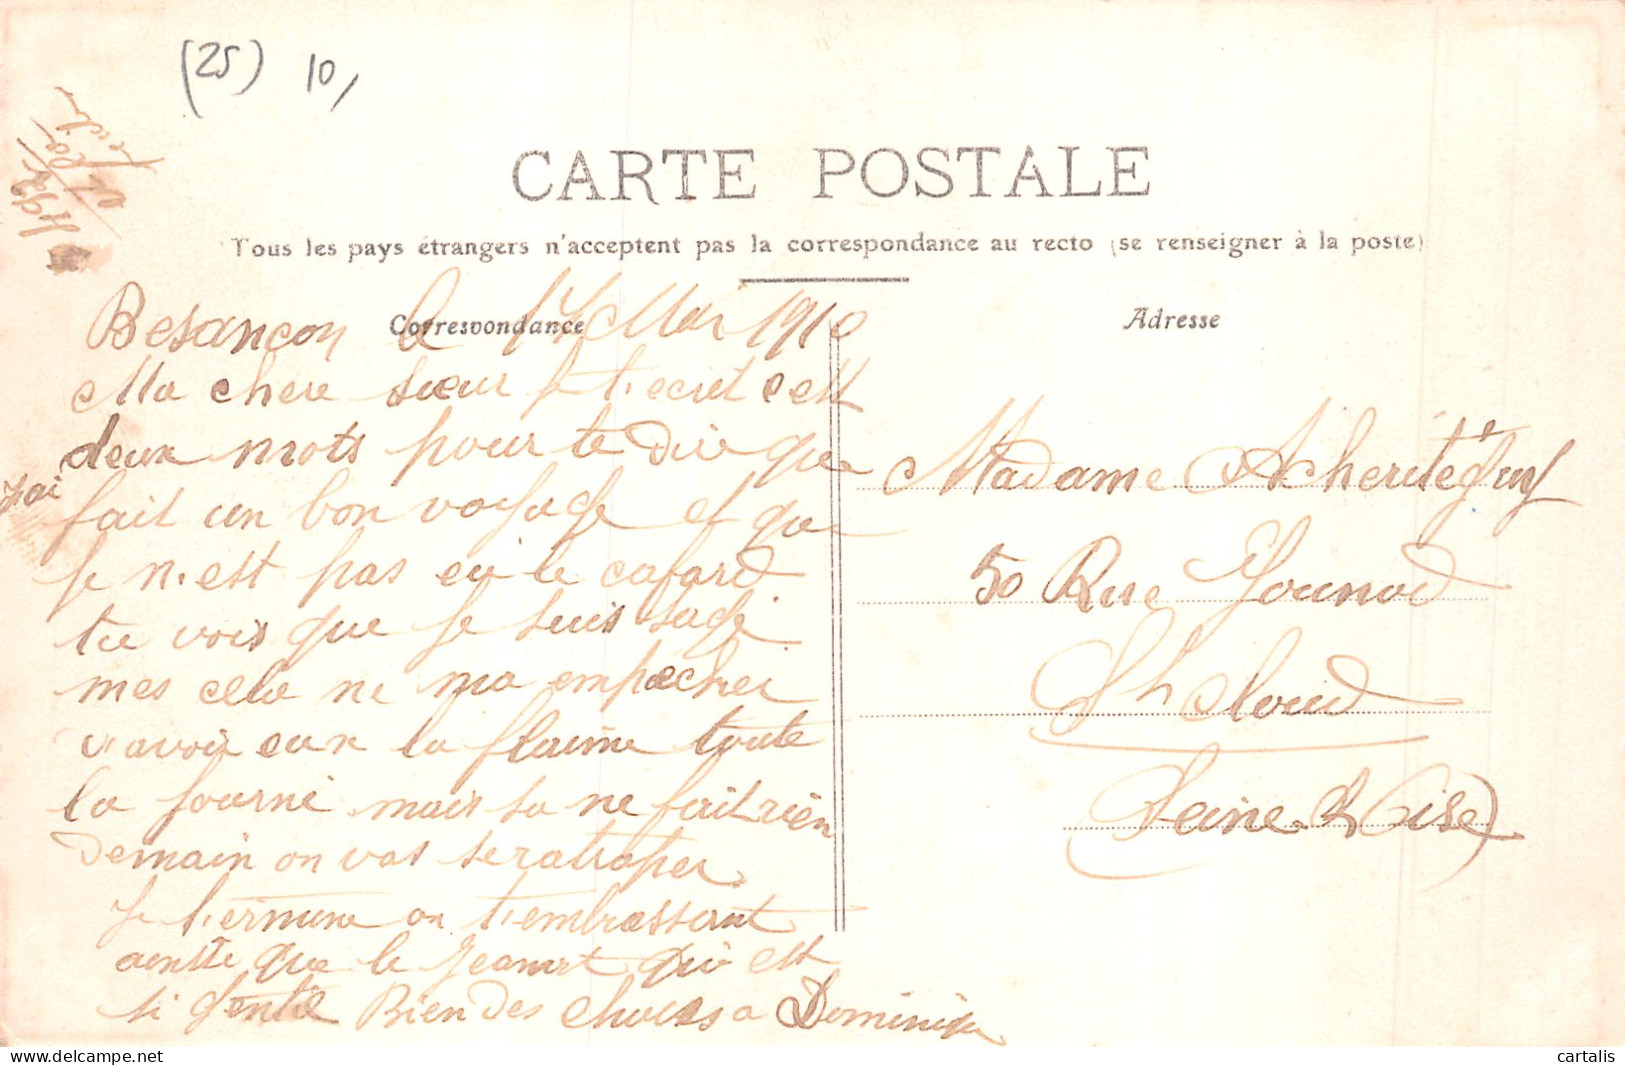 (25) 10,
CARTE POSTALE
Tous les pays étrangers n'acceptent pas la correspondance au recto (se renseigner à la poste)
Correspondance
Besançon le 17 Mai 1910
Ma chere sœur je t'ecrit cest
deux mots pour te dire que
j'ai fait un bon voyage et que
je n'est pas eu le cafard
tu vois que je suis sage
mes cela ne ma empecher
d'avoir eux la flaime toute
la journé mais sa ne fait rien
demain on vas se ratraper
Je termine en t'embrassant
ainsie que le Jeanot qui est
si gentie Bien des choses a Dominique
Adresse
Madame Acheritéguy
50 Rue Gounod
St Cloud
(Seine & Oise)
cartalis